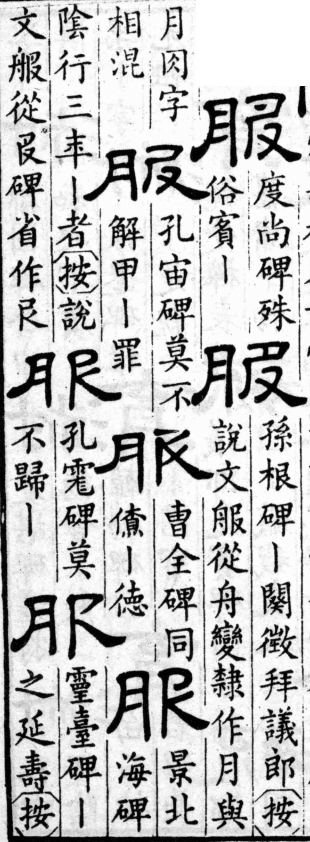 服
度尚碑殊
俗賓丨
服
孫根碑丨闕徵拜議郎按
說文𦨕從舟變隸作月與
月肉字
相混
服
孔宙碑莫不
解甲丨罪
服
曹全碑同
僚丨德
服
景北
海碑
陰行三年丨者按說
文𦨕從𠬝碑省作尺
服
孔彪碑莫
不歸丨
服
靈臺碑丨
之延壽按